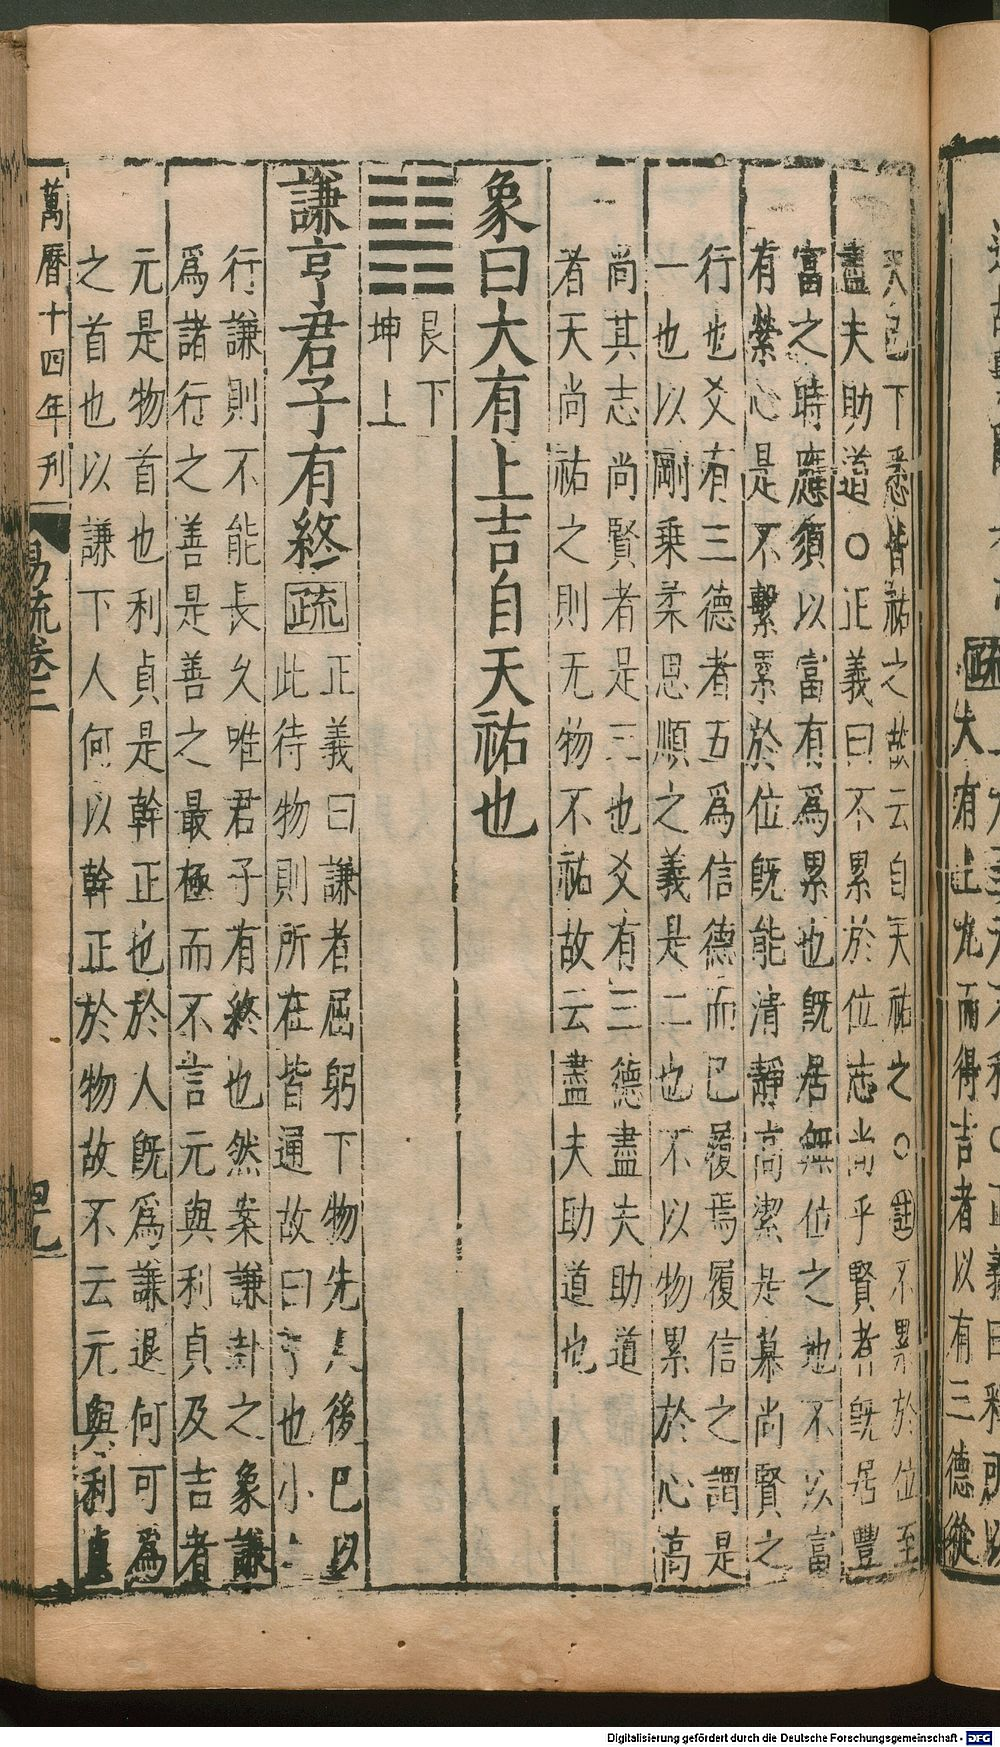 天已下悉皆祐之故云自天祐之○註不累於位至
盡夫助道○正義曰不累於位志尚乎賢者既居豐
富之時應須以富有爲累也既居無位之地不以富
有縈心是不繫累於位既能清靜高潔是慕尚賢之
行也爻有三德者五爲信德而已履焉履信之謂是
一也以剛乗柔思順之義是二也不以物累於心高
尚其志尚賢者是三也爻有三德盡夫助道
者天尚祐之則无物不祐故云盡夫助道也
象曰大有上吉自天祐也
艮下
坤上
謙亨君子有終 疏 正義曰謙者屈躬下物先人後巳以
此待物則所在皆通故曰亨也小
行謙則不能長久唯君子有終也然案謙卦之象謙
爲諸行之善是善之最極而不言元與利貞及吉者
元是物首也利貞是幹正也於人既爲謙退何可爲
之首也以謙下人何以幹正於物故不云元與利貞
萬曆十四年刋
易疏卷二
四九
疏
夫有上九而得吉者以有三德從
Digitalisierung gefördert durch die Deutsche Forschungsgemeinschaft - DFG